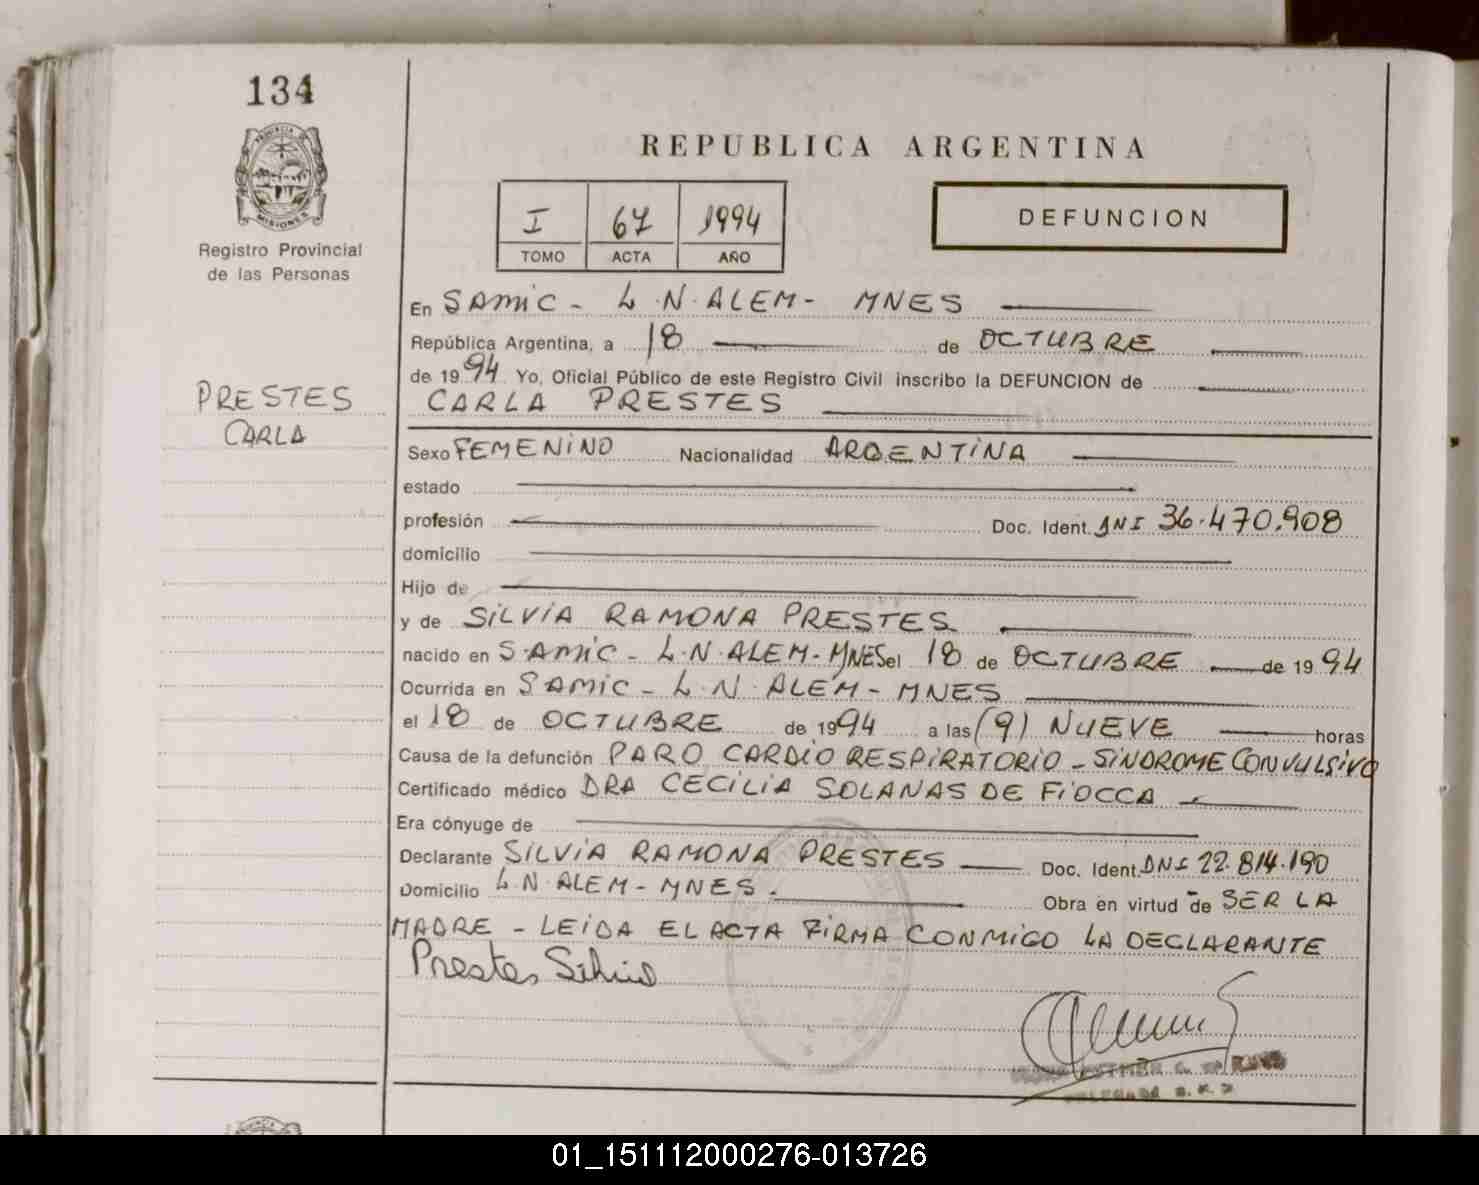 134
PROVINCIA DE
MISIONES
Registro Provincial
de las Personas
PRESTES
CARLA
REPUBLICA ARGENTINA
I 67 1994
TOMO ACTA AÑO
DEFUNCION
En SAMIC - L.N. ALEM - MNES
República Argentina, a 18 de OCTUBRE
de 1994 Yo, Oficial Público de este Registro Civil inscribo la DEFUNCION de
CARLA PRESTES
Sexo FEMENINO Nacionalidad ARGENTINA
estado
profesión Doc. Ident. DNI 36.470.908
domicilio
Hijo de
y de SILVIA RAMONA PRESTES
nacido en SAMIC - L.N. ALEM - MNES el 18 de OCTUBRE de 1994
Ocurrida en SAMIC - L.N. ALEM - MNES
el 18 de OCTUBRE de 1994 a las (9) NUEVE horas
Causa de la defunción PARO CARDIO RESPIRATORIO - SINDROME CONVULSIVO
Certificado médico DRA CECILIA SOLANAS DE FIOCCA
Era cónyuge de
Declarante SILVIA RAMONA PRESTES Doc. Ident. DNI 22.814.190
Domicilio L.N. ALEM - MNES. Obra en virtud de SER LA
MADRE - LEIDA EL ACTA FIRMA CONMIGO LA DECLARANTE
Prestes Silvia
01_151112000276-013726